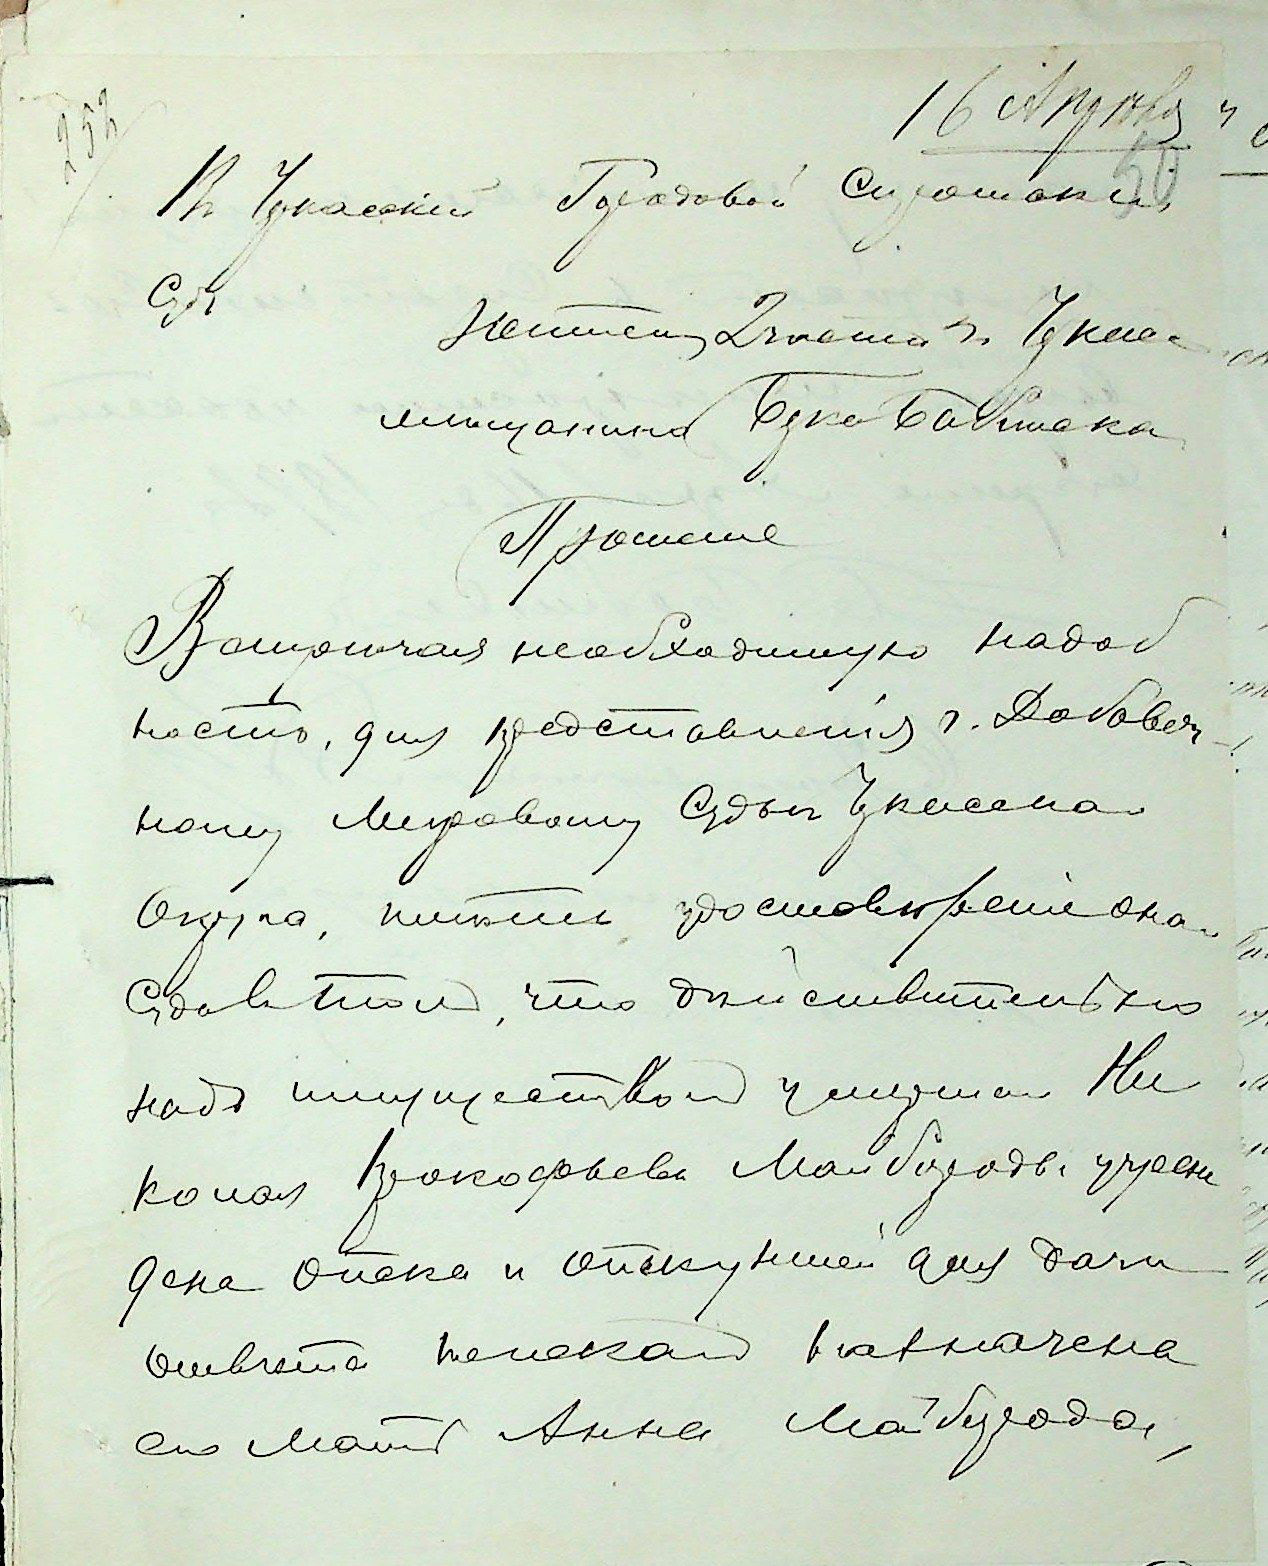 252
16 Апреля
50
Въ Черкасскій Городовой Сиротскій
Судъ
Жителя 2 части г. Черкасъ
мѣщанина
Прошеніе
Встрѣчая необходимую надоб
ность, для представленія г. Добавоч
ному Мировому Судьѣ Черкасскаго
Округа, имѣть удостовѣреніе онаго
Суда въ томъ, что дѣйствительно
надъ имуществомъ умершаго Ни
колая Прокофьева Майбороды учреж
дена Опека и Опекуншей для дачи
отвѣта искамъ назначена
его Мать Анна Майборода,